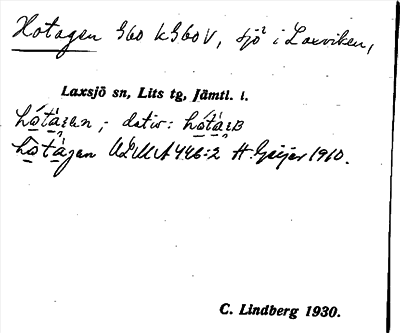 Hotagen 360 k360V, sjö i Laxviken,
Laxsjö sn, Lits tg, Jämtl. l.
hótàgen, - dativ: hótàgB
hòtàgen ULMA 446:2 H. Geijer 1910.
C. Lindberg 1930.